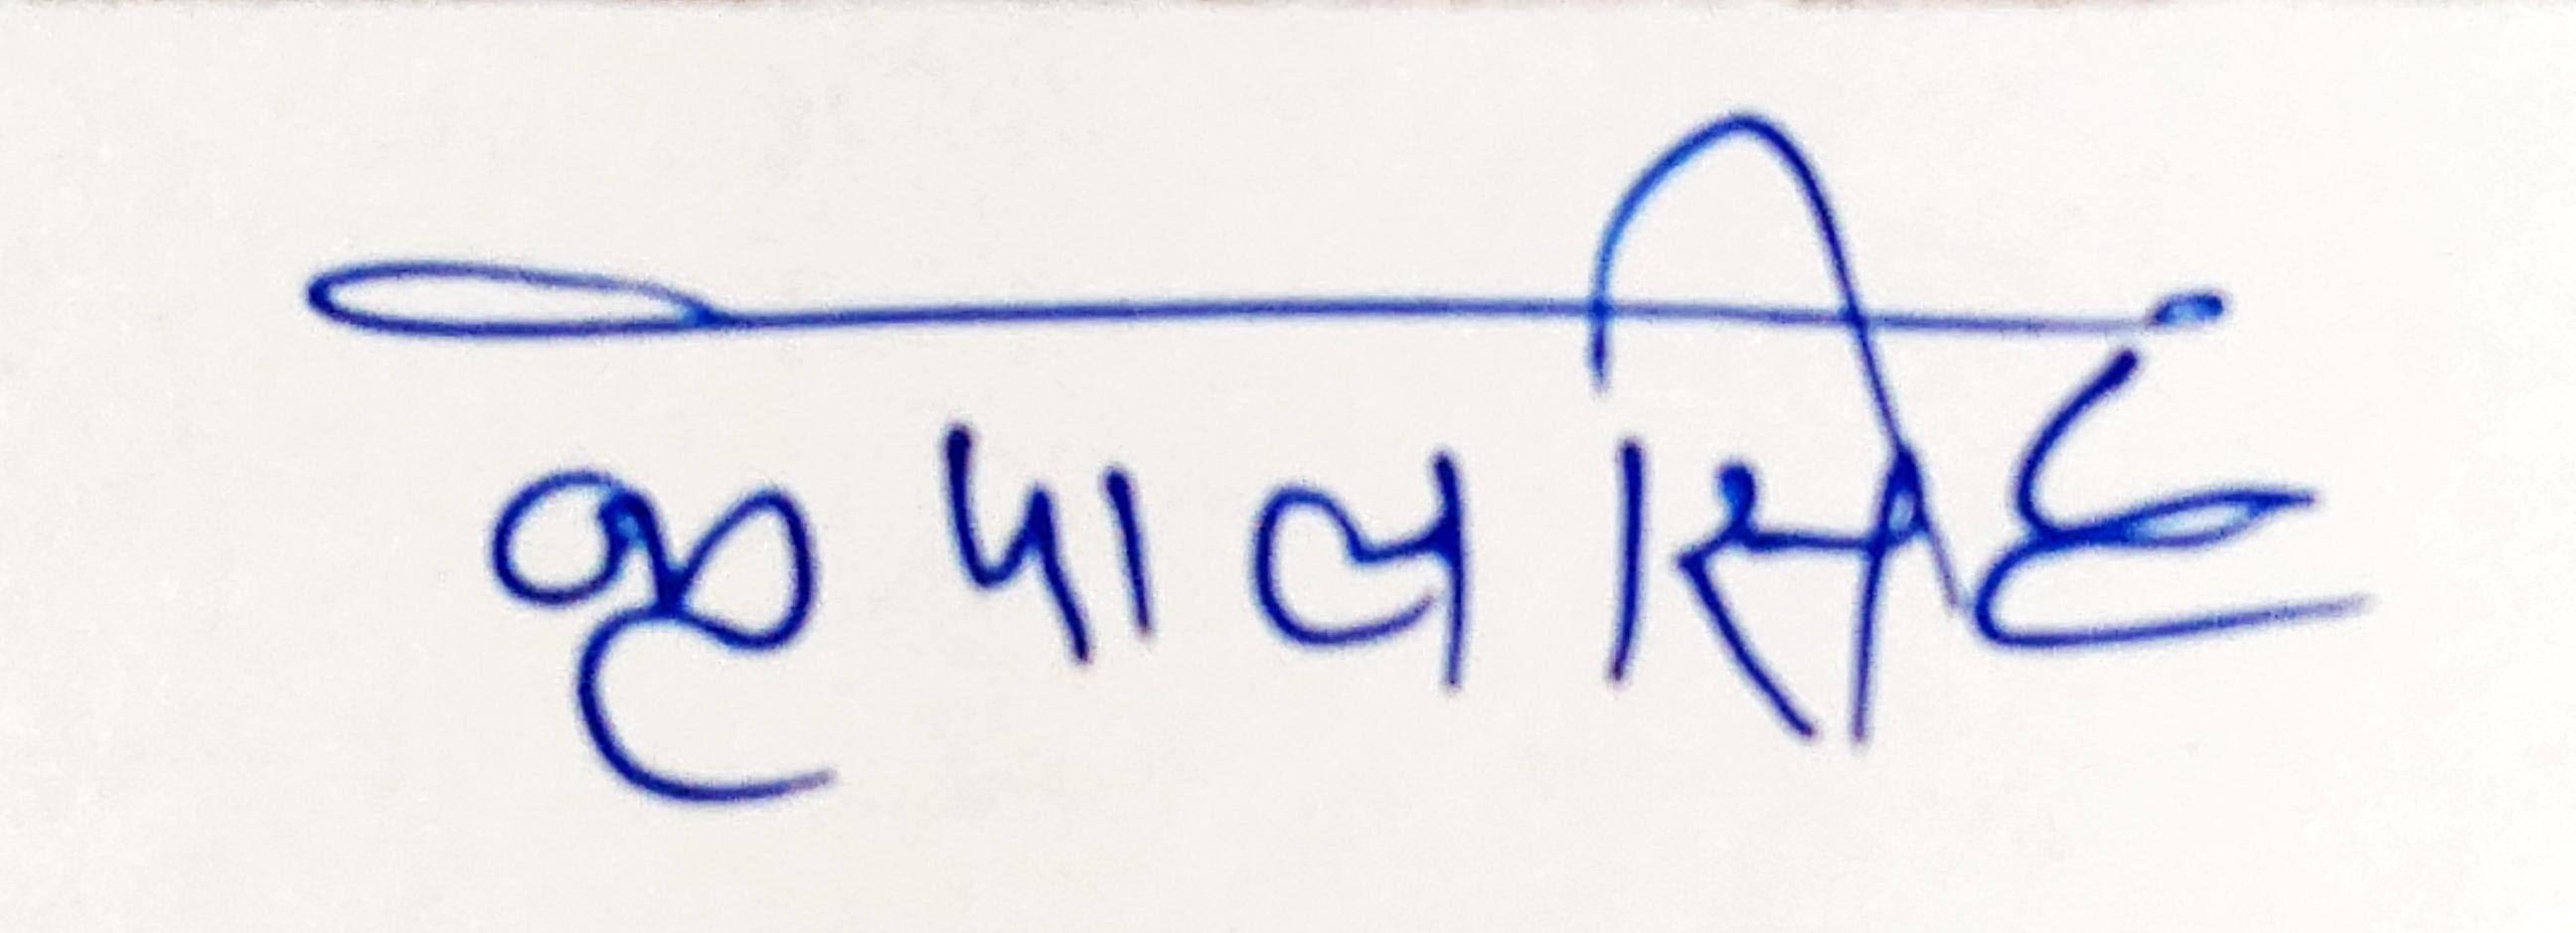 कृपाल सिंह